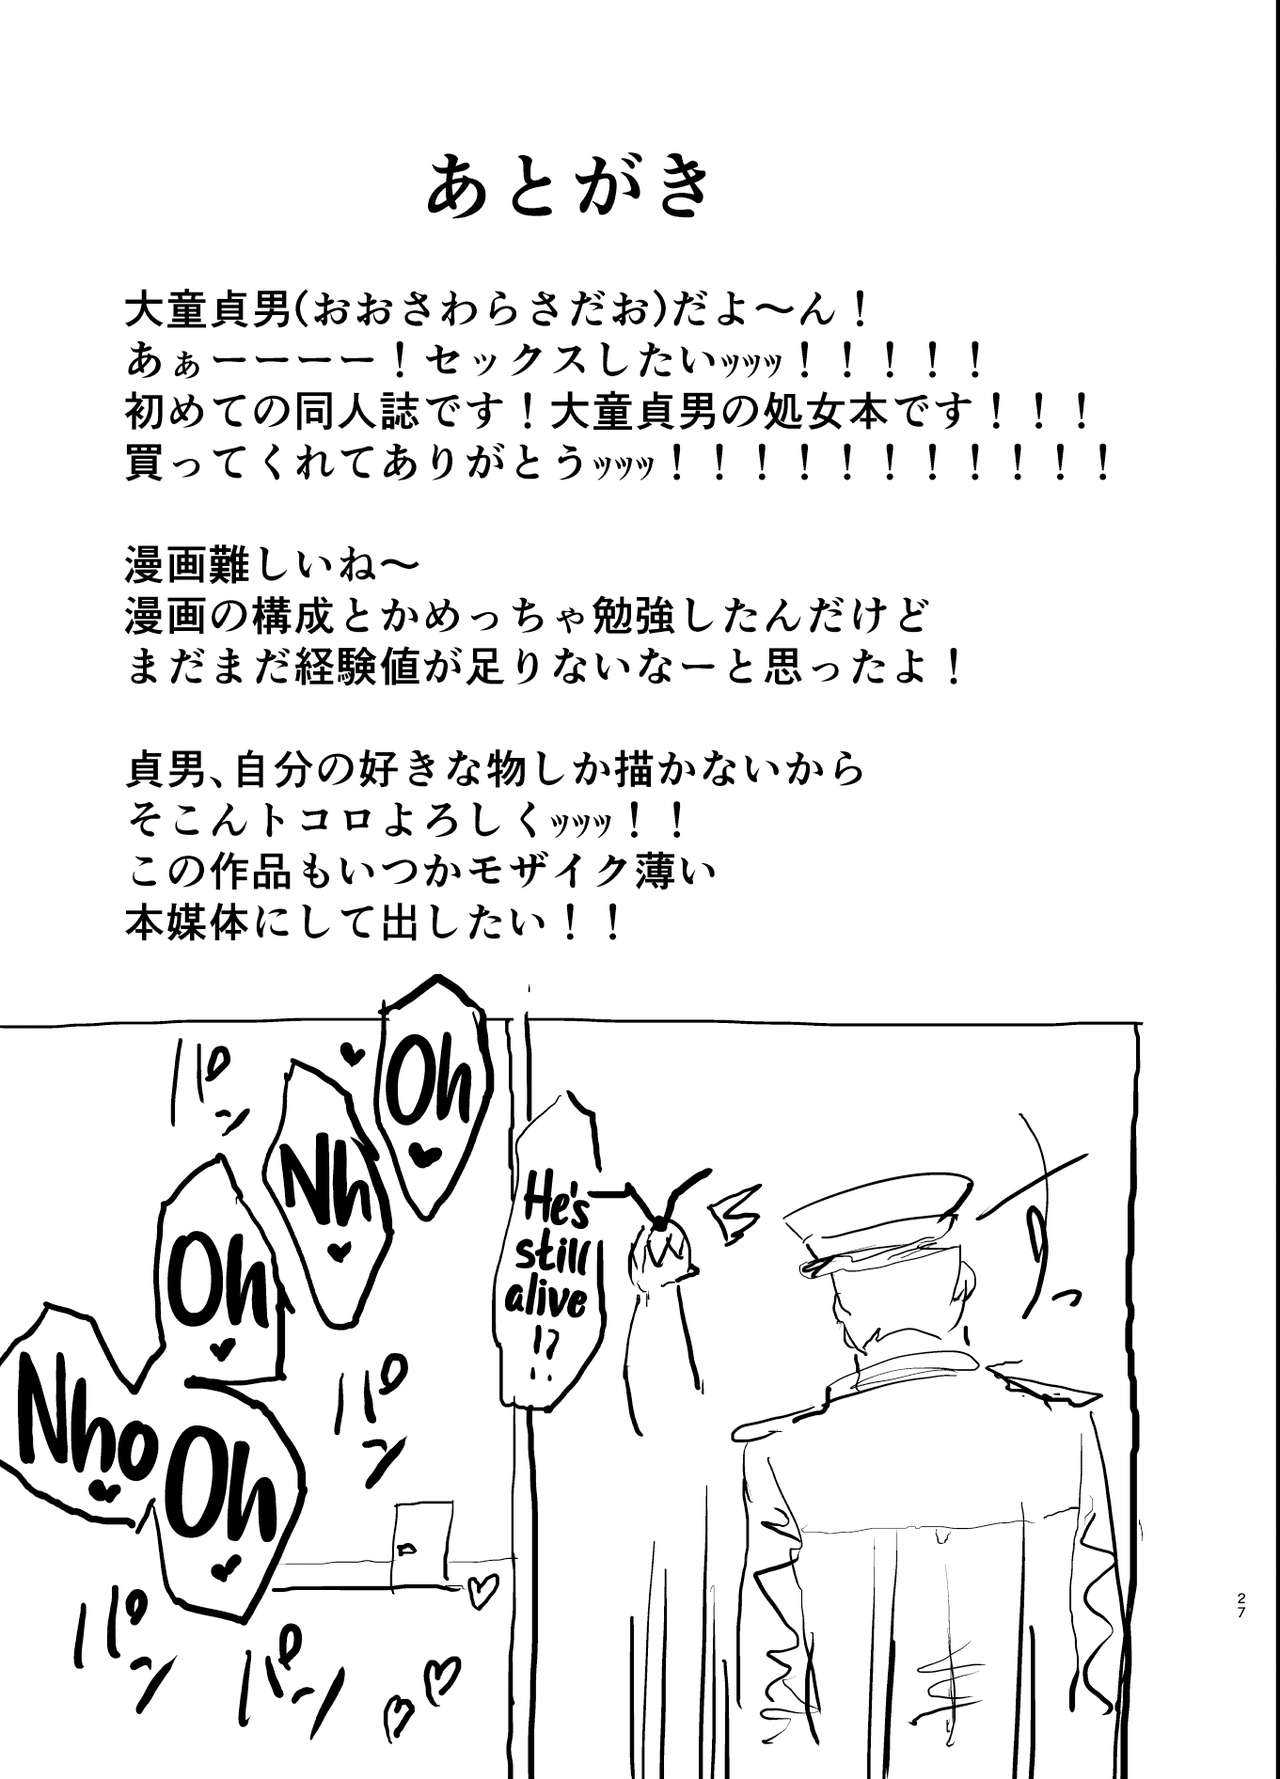 あとがき
大童貞男(おおさわらさだお)だよ〜ん！
あぁーーーー！セックスしたいｯｯｯ！！！！！
初めての同人誌です！大童貞男の処女本です！！！
買ってくれてありがとうｯｯｯ！！！！！！！！！！！
漫画難しいね〜
漫画の構成とかめっちゃ勉強したんだけど
まだまだ経験値が足りないなーと思ったよ！
貞男､自分の好きな物しか描かないから
そこんトコロよろしくｯｯｯ！！
この作品もいつかモザイク薄い
本媒体にして出したい！！
Oh
♥
Nh
♥
Oh
♥
Nho
♥
Oh
♥
パン
パン
パン
パン
He's
still
alive
!?
27